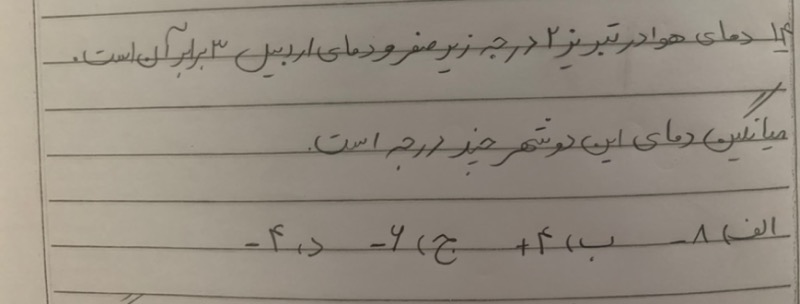 ۱۴ دمای هوا در تبریز ۲ درجه زیر صفر و دمای اردبیل ۳ برابر آن است.
میانگین دمای این دو شهر چند درجه است.
الف) ۸- ب) ۴+ ج) ۶- د) ۴-